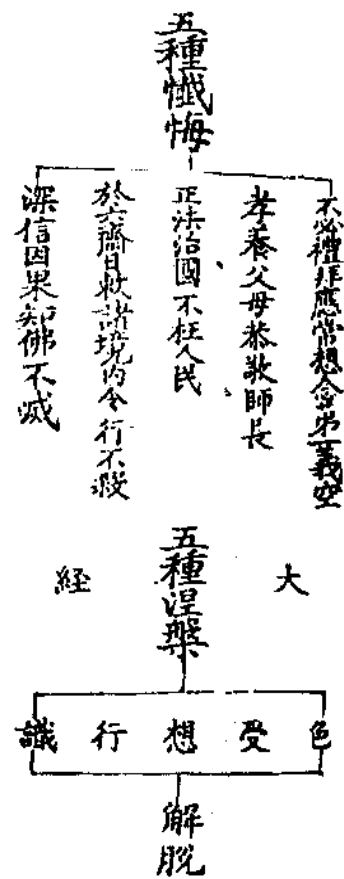 五種懺悔
不必禮拜應常想念第一義空
孝養父母恭敬師長
正法治國不枉人民
於六齋日敕諸境內令行不殺
深信因果知佛不滅
五種涅槃
大
経
色
受
想
行
識
解脫